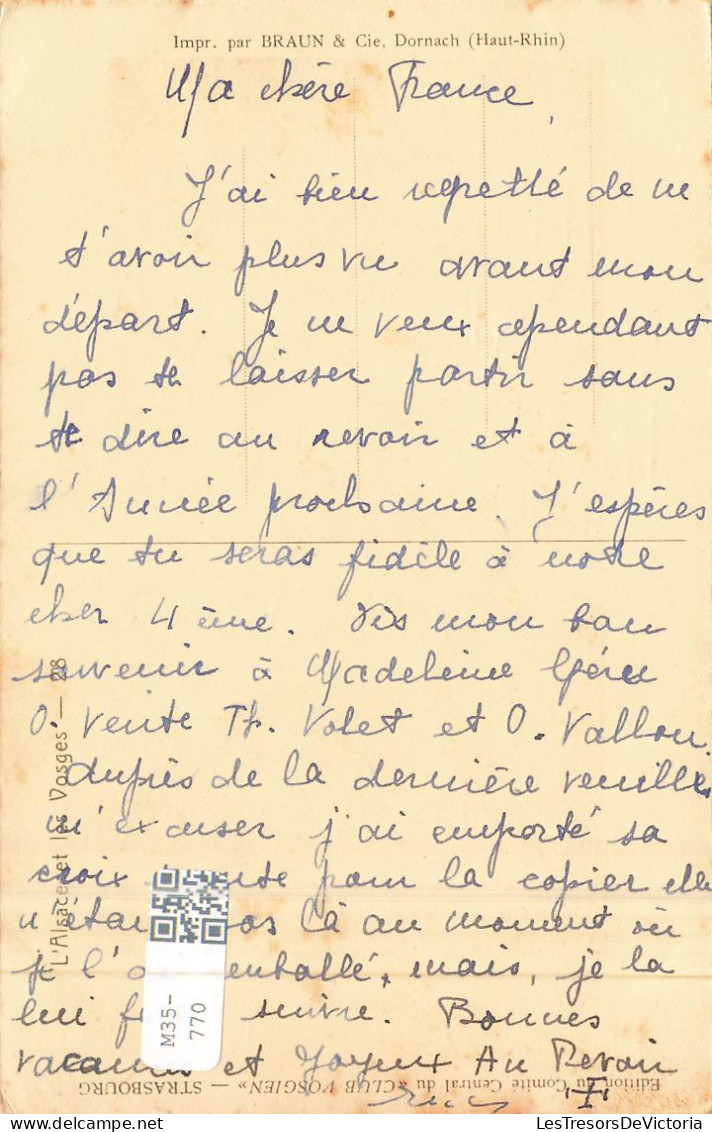 Impr. par BRAUN & Cie, Dornach (Haut-Rhin)
Ma chère France,
J'ai bien regretté de ne
t'avoir plus vu avant mon
départ. Je ne veux cependant
pas te laisser partir sans
te dire au revoir et à
l'Année prochaine. J'espères
que tu seras fidèle à notre
cher 4ème. Dis mon bon
souvenir à Madeleine
O. Vente Th. Volet et O. Vallon.
Auprès de la dernière veuille
m'excuser j'ai emporté sa
croix pour la copier elle
n'était pas là au moment où
je l'ai emballé, mais, je la
lui suivre. Bonnes
vacances et Joyeux Au Revoir
"L'Alsace et les Vosges" — 28
M35-
770
Edition du Comité Central du «CLUB VOSGIEN» — STRASBOURG
LesTresorsDeVictoria